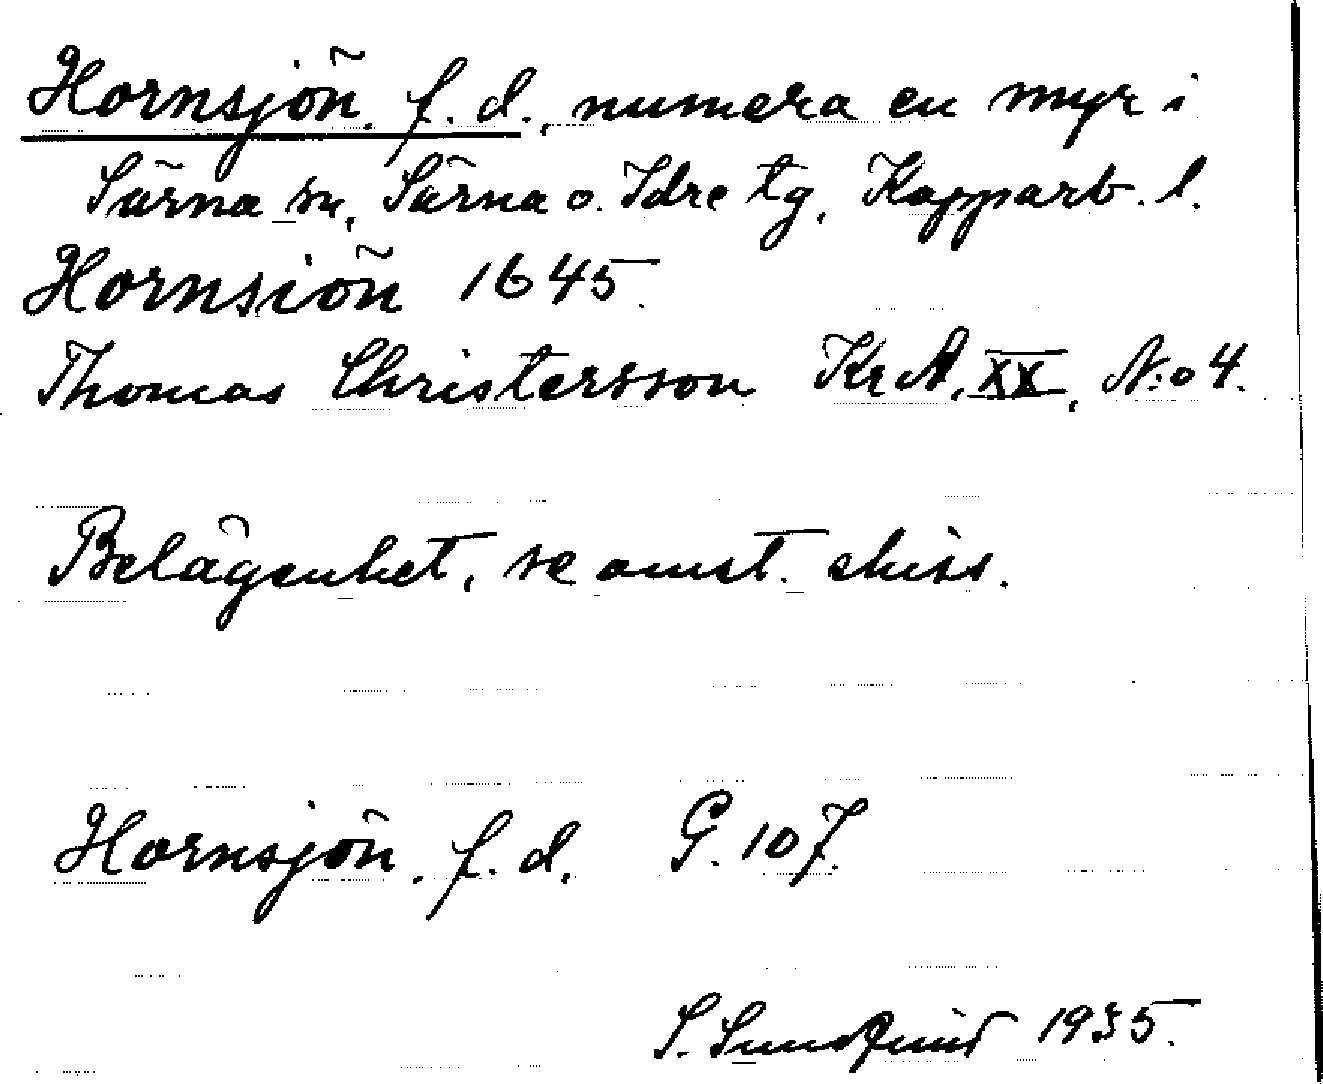 Hornsjön, f. d., numera en myr i
Särna sn, Särna o. Idre tg, Kopparb. l.
Hornsiön 1645.
Thomas Christersson KrA, XX, N:o 4.
Belägenhet, se omst. skiss.
Hornsjön, f. d. G. 107.
S. Sundqvist 1935.